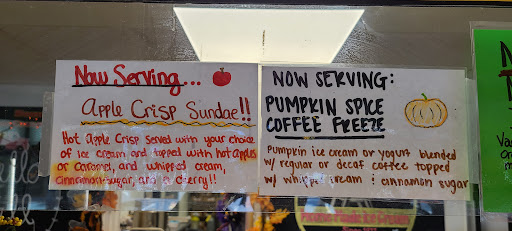 Now Serving...
Apple Crisp Sundae!!
Hot Apple Crisp served with your choice
of ice cream and topped with hot apples
or caramel, and whipped cream,
cinnamon-sugar, and a cherry!!
NOW SERVING:
PUMPKIN SPICE
COFFEE FREEZE
Pumpkin ice cream or yogurt blended
w/ regular or decaf coffee topped
w/ whipped cream & cinnamon sugar